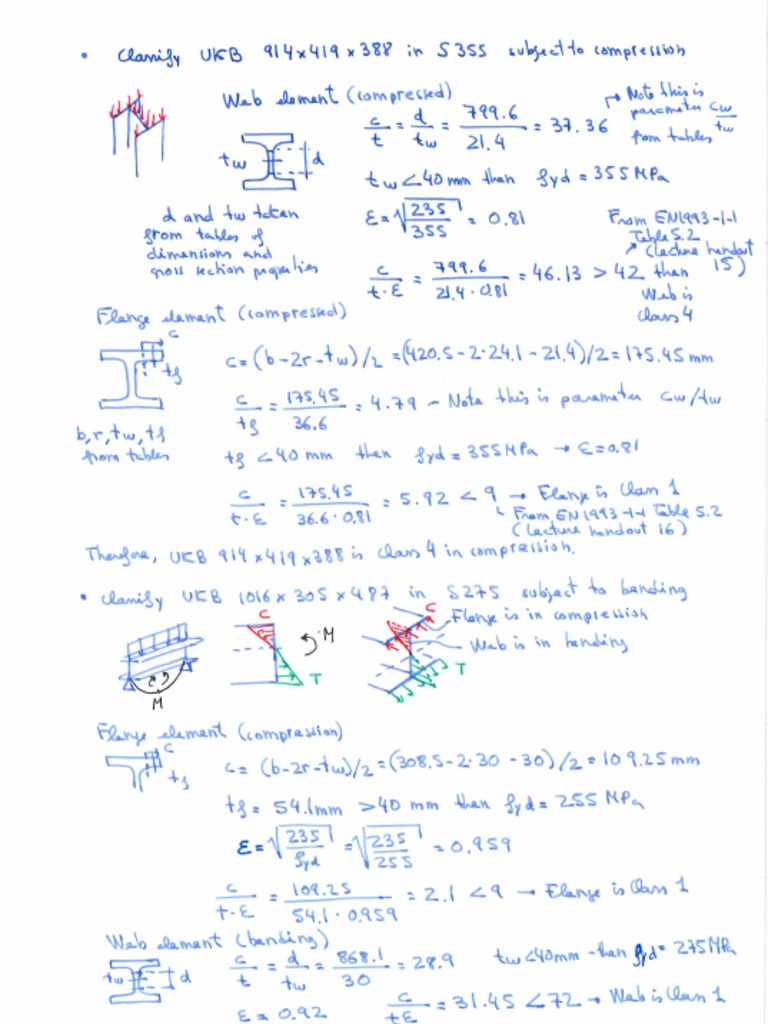 • Classify UKB 914x419x388 in S355 subject to compression
Web element (compressed)
c/t = d/tw = 799.6/21.4 = 37.36
→ Note this is
parameter cw/tw
from tables
tw d
tw < 40 mm then fyd = 355 MPa
d and tw taken
from tables of
dimensions and
gross section properties
ε = √(235/355) = 0.81
From EN1993-1-1
Table 5.2
(lecture handout
15)
c/(t·ε) = 799.6/(21.4·0.81) = 46.13 > 42 then
Web is
class 4
Flange element (compressed)
c
tf
c = (b-2r-tw)/2 = (420.5-2·24.1-21.4)/2 = 175.45 mm
c/tf = 175.45/36.6 = 4.79 - Note this is parameter cw/tw
b,r,tw,tf
from tables
tf < 40 mm then fyd = 355 MPa → ε = 0.81
c/(t·ε) = 175.45/(36.6·0.81) = 5.92 < 9 → Flange is Class 1
From EN 1993-1-1 Table 5.2
(lecture handout 16)
Therefore, UKB 914x419x388 is class 4 in compression.
• Classify UKB 1016x305x487 in S275 subject to bending
C M T
M
C T
Flange is in compression
Web is in bending
Flange element (compression)
c
tf
c = (b-2r-tw)/2 = (308.5-2·30-30)/2 = 109.25 mm
tf = 54.1mm > 40 mm then fyd = 255 MPa
ε = √(235/fyd) = √(235/255) = 0.959
c/(t·ε) = 109.25/(54.1·0.959) = 2.1 < 9 → Flange is Class 1
Web element (bending)
tw d
c/t = d/tw = 868.1/30 = 28.9 tw < 40mm then fyd = 275 MPa
ε = 0.92 c/(tε) = 31.45 < 72 → Web is Class 1